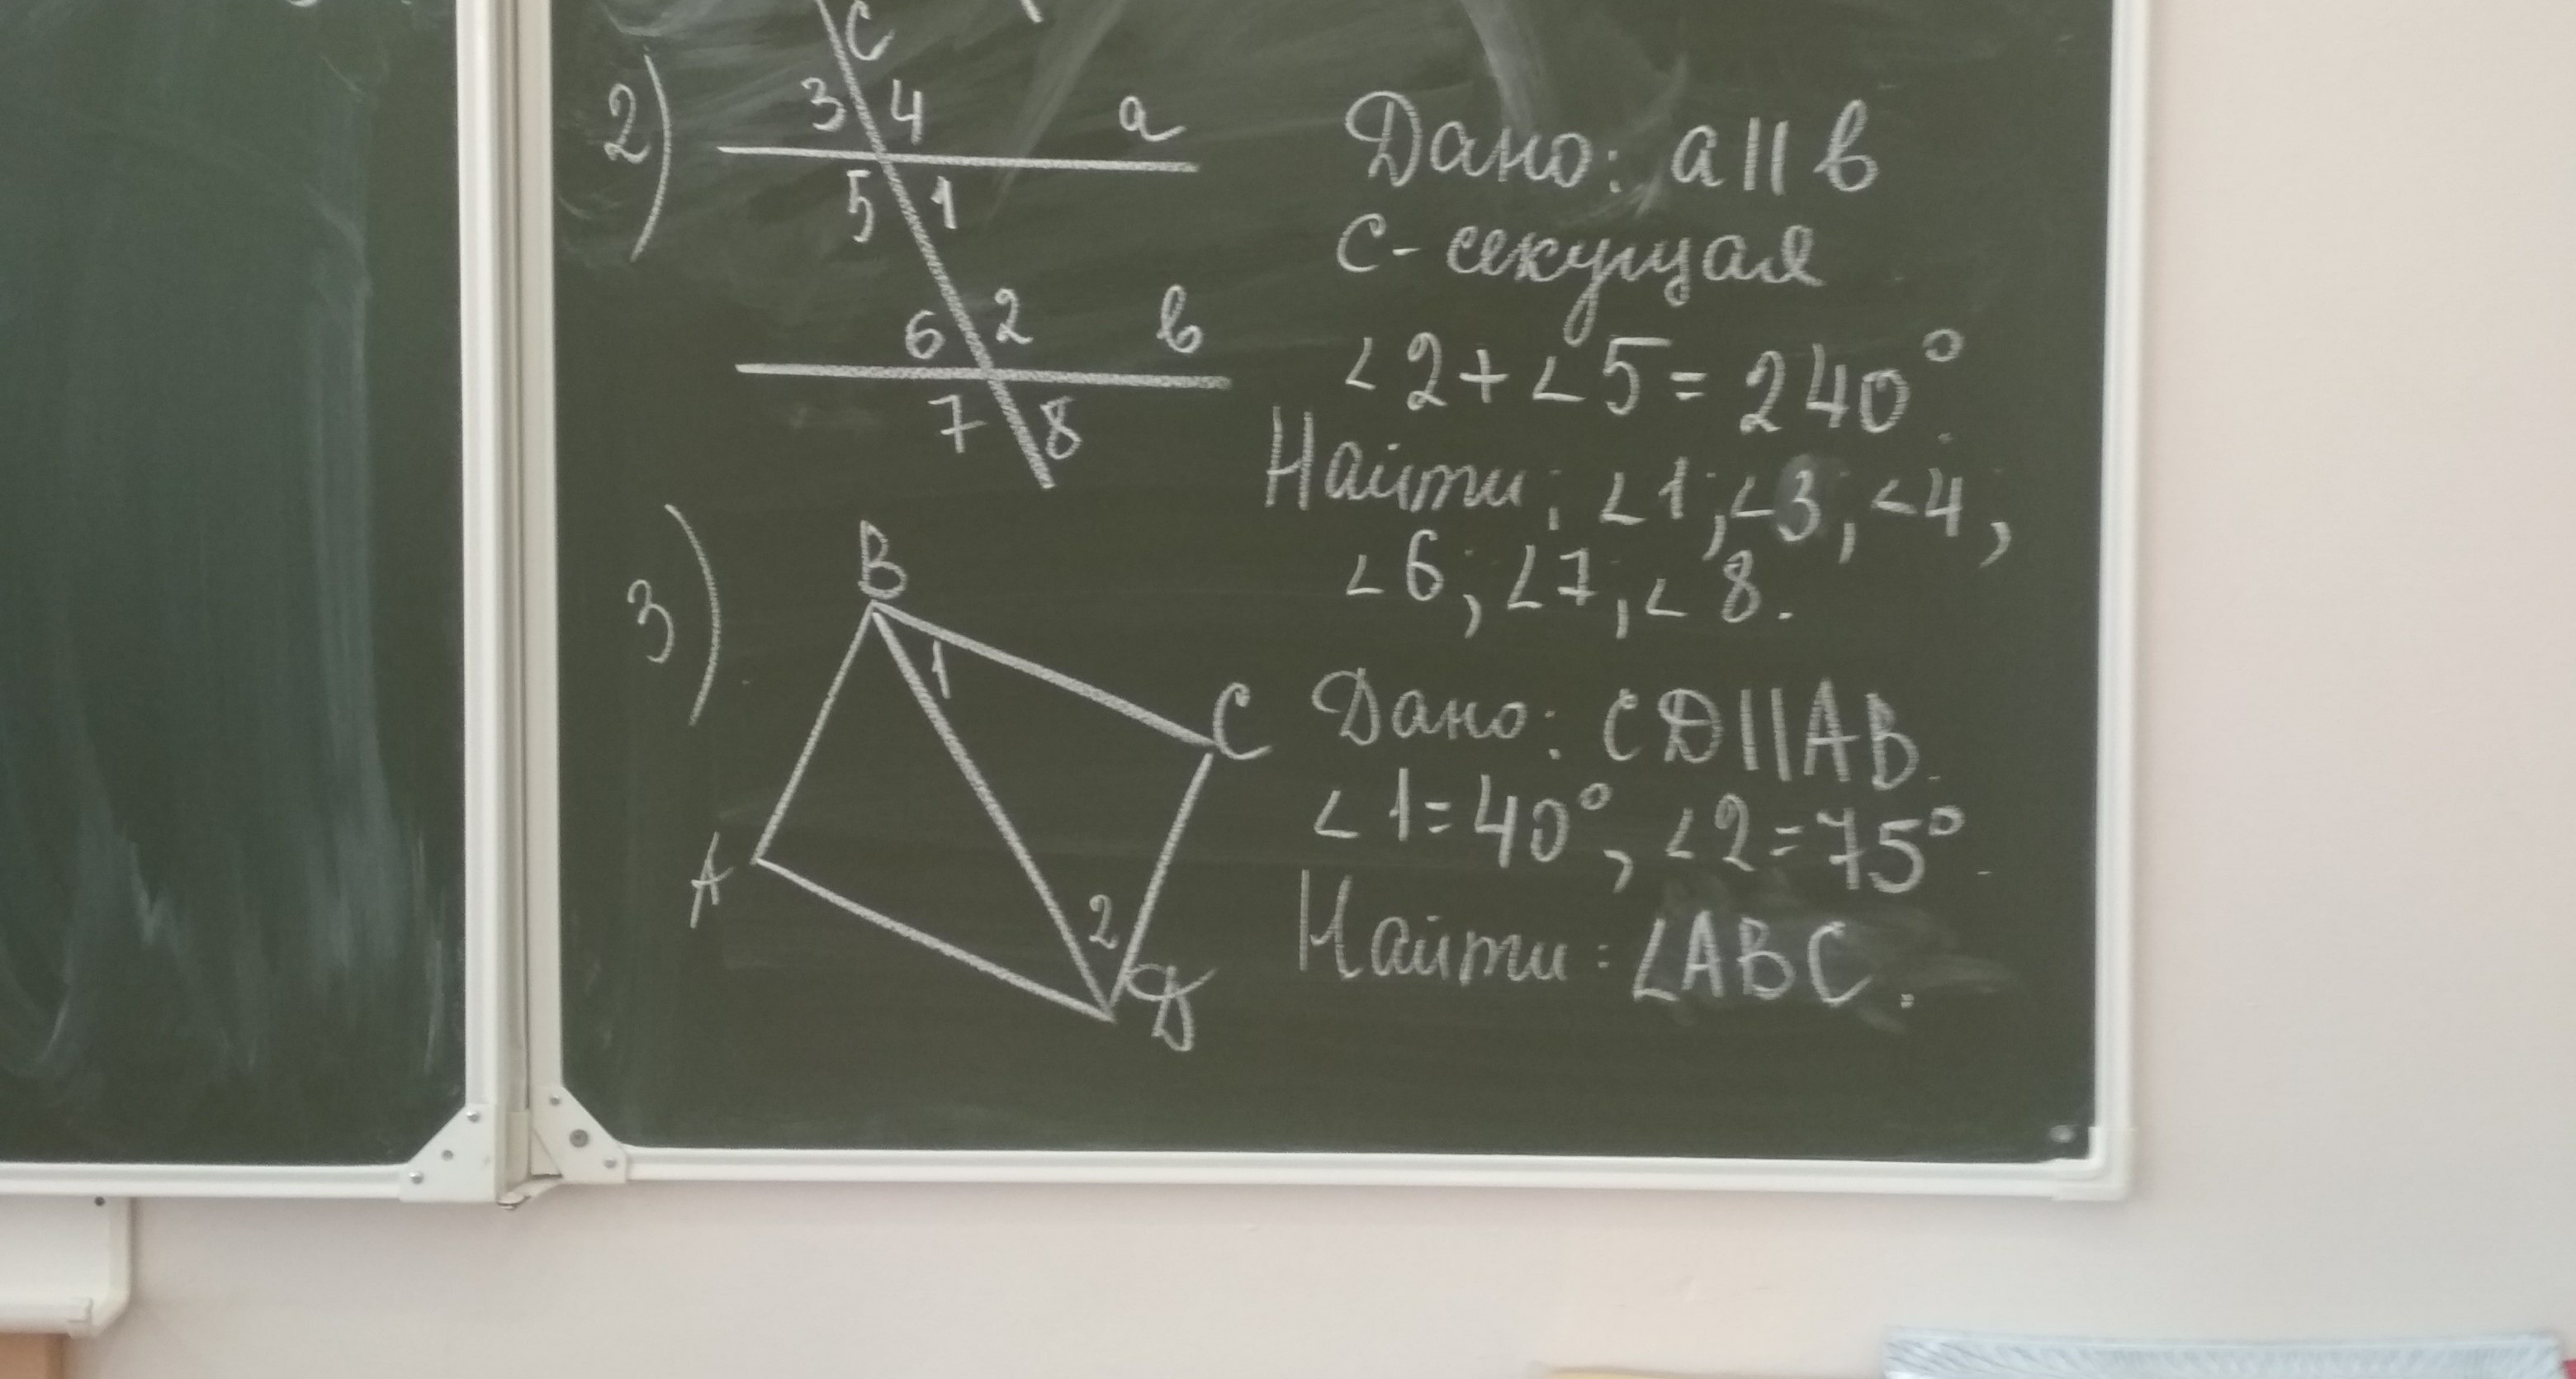 2)
c
3 4 a
5 1
6 2 b
7 8
Дано: a || b
c - секущая
∠2 + ∠5 = 240°.
Найти: ∠1; ∠3; ∠4,
∠6; ∠7; ∠8.
3)
B
1
C
A
2
D
Дано: CD || AB.
∠1 = 40°, ∠2 = 75°.
Найти: ∠ABC.